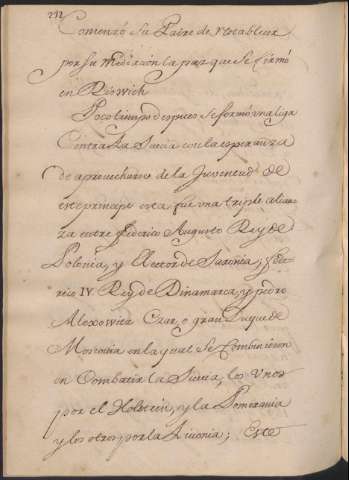 232
Comenzó Su Padre de restablecer
por su mediacion la paz que Se firmó
en Riswich
Poco tiempo despues se formó vna liga
Contra La Suecia con la esperanza
de aprovecharse de la Juventud de
este principe esta fue vna triple alian
za entre federico Augusto Rey de
Polonia, y Elector de Saxonia; fede
rico IV. Rey de Dinamarca, y pedro
Alexowitz Czar, o gran Duque de
Moscouia en la qual Se Combinieron
en Combatir la Suecia, los Vnos
por el Holstein, y la Pomerania
y los otros por la Liuonia; Este